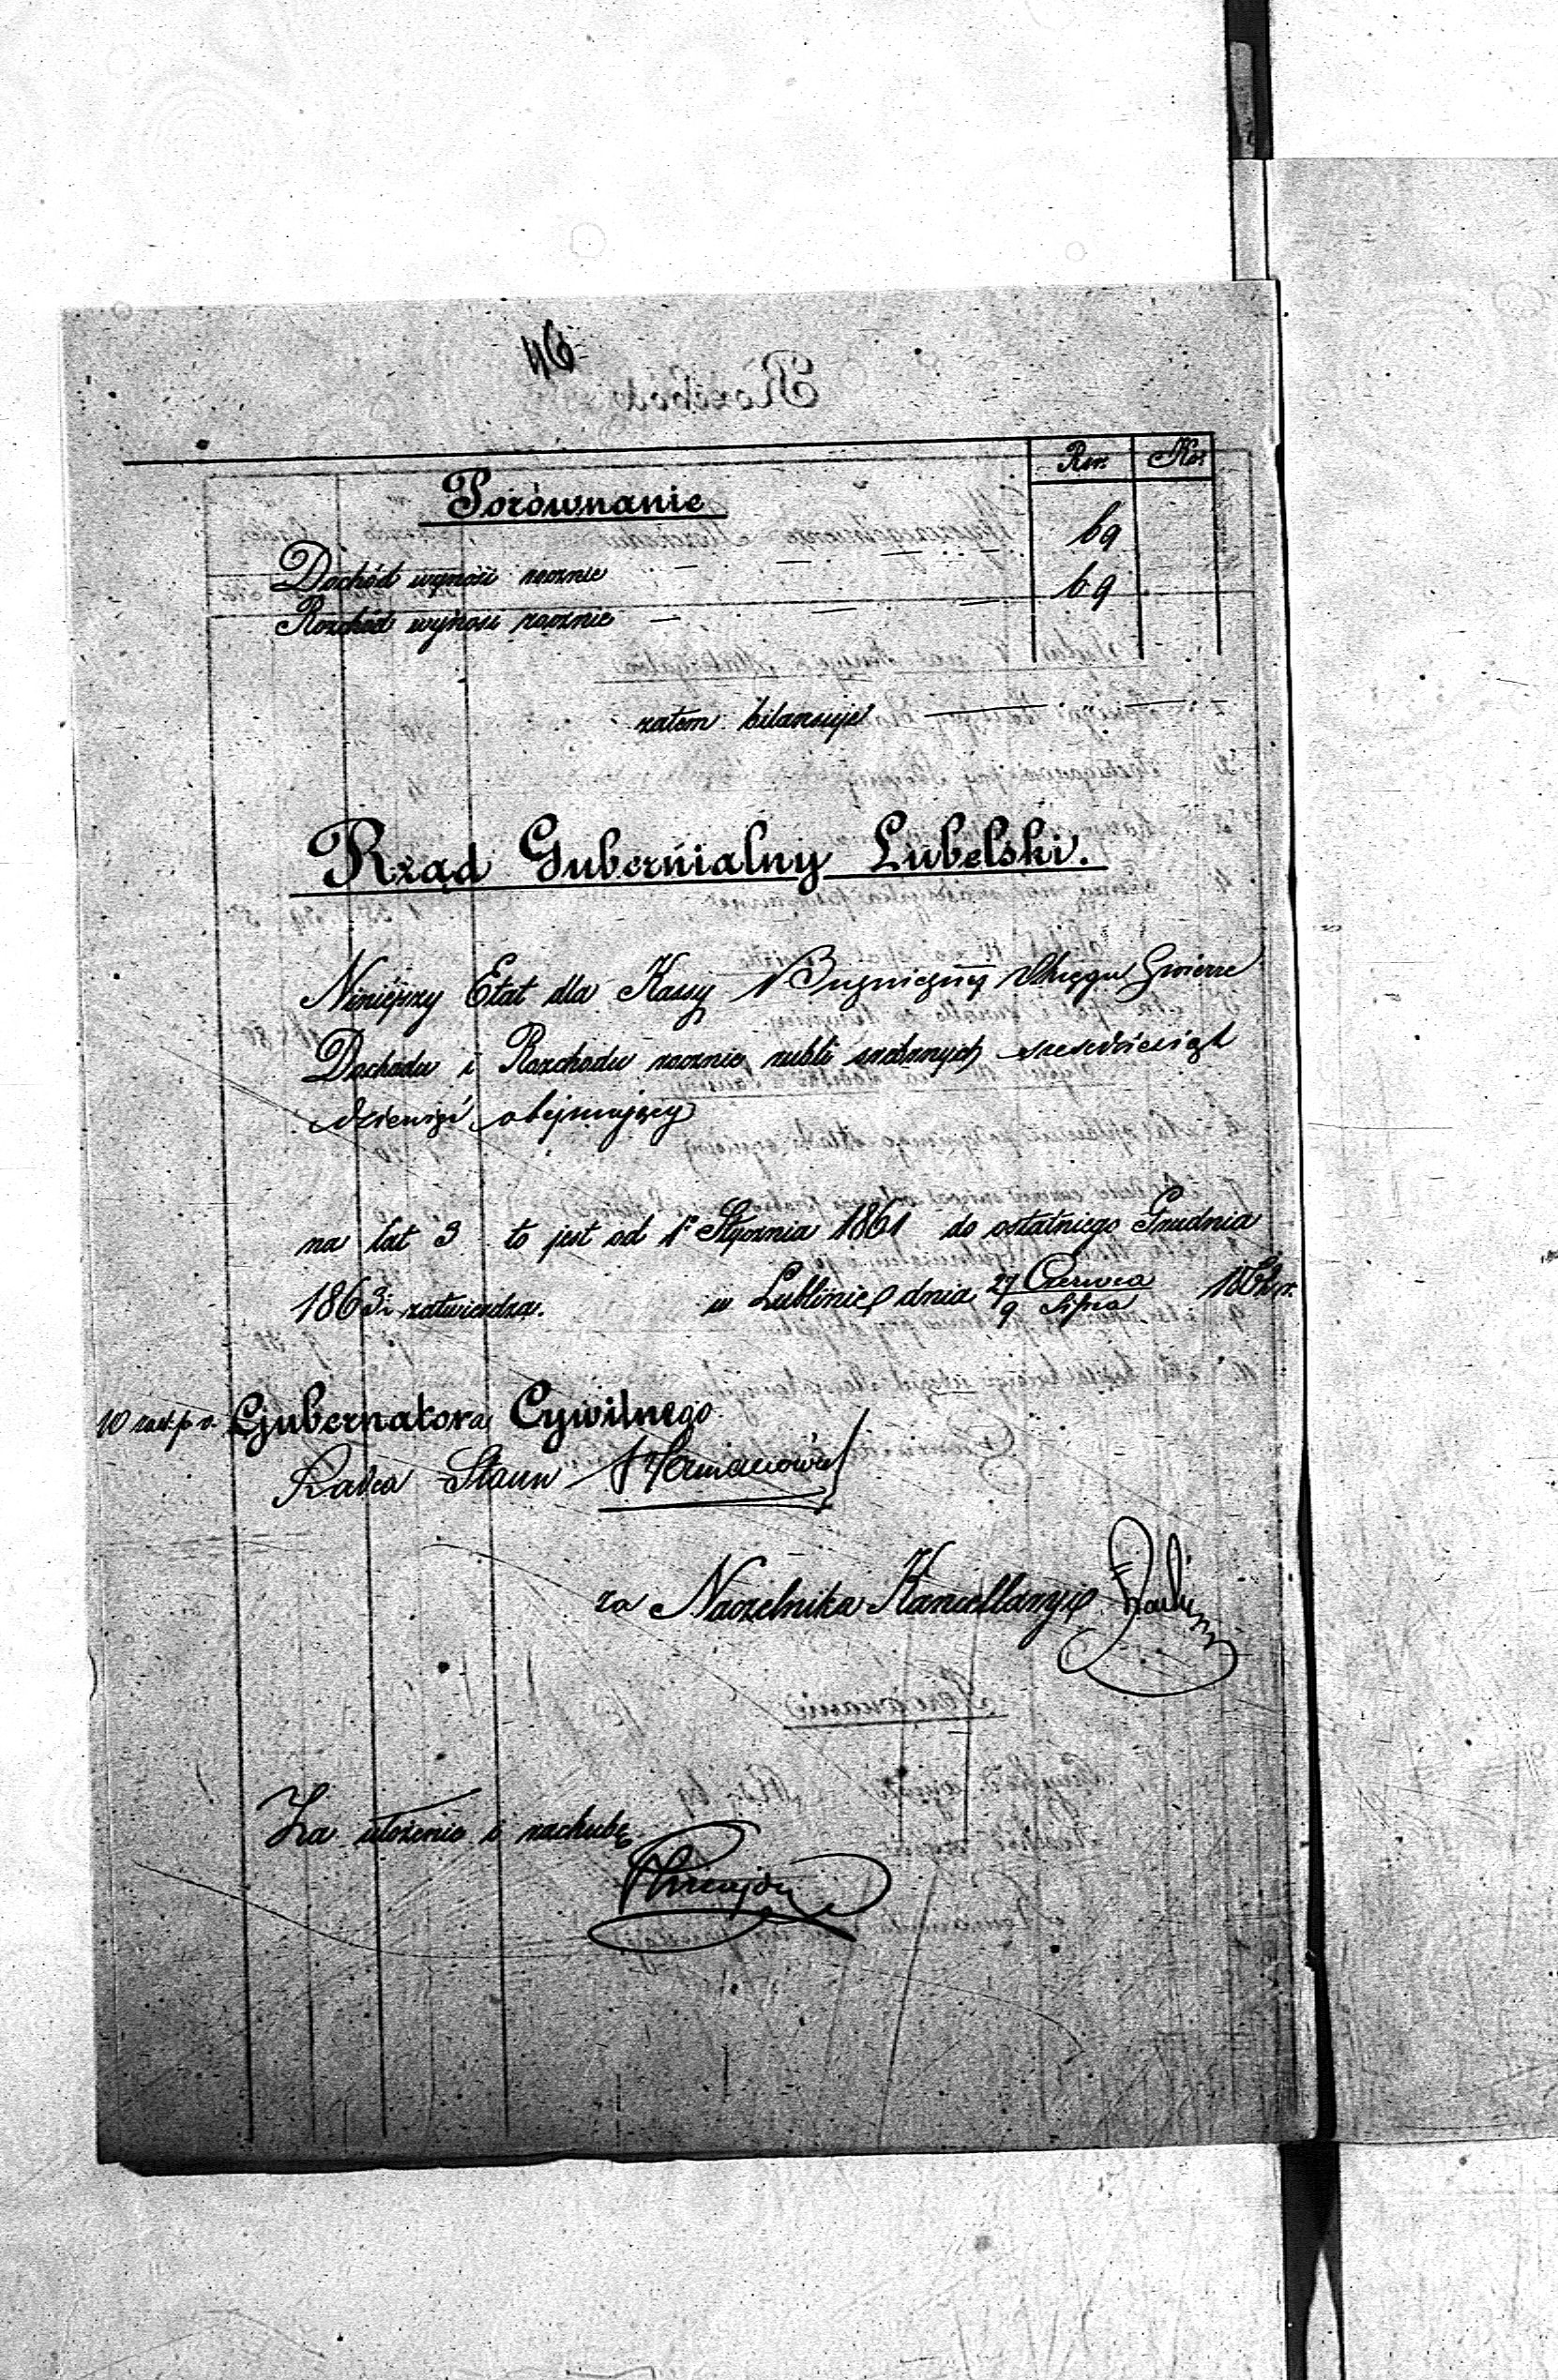 46
Rsr. Kop.
Porównanie
Dochód wynosi rocznie 69
Rozchód wynosi rocznie 69
zatem bilansuje
Rząd Gubernialny Lubelski.
Niniejszy Etat dla Kassy Bużniczej Okręgu
Dochodu i Rozchodu rocznie rubli srebrnych sześćdziesiąt
dziewięć obejmujący
na lat 3 to jest od 1º Stycznia 1861 do ostatniego Grudnia
1863 r. zatwierdza. w Lublinie dnia 27 Czerwca
9 Lipca
w zast. p. o. Gubernatora Cywilnego
Radca Stanu
za Naczelnika Kancellaryi
Za ułożenie i rachubę